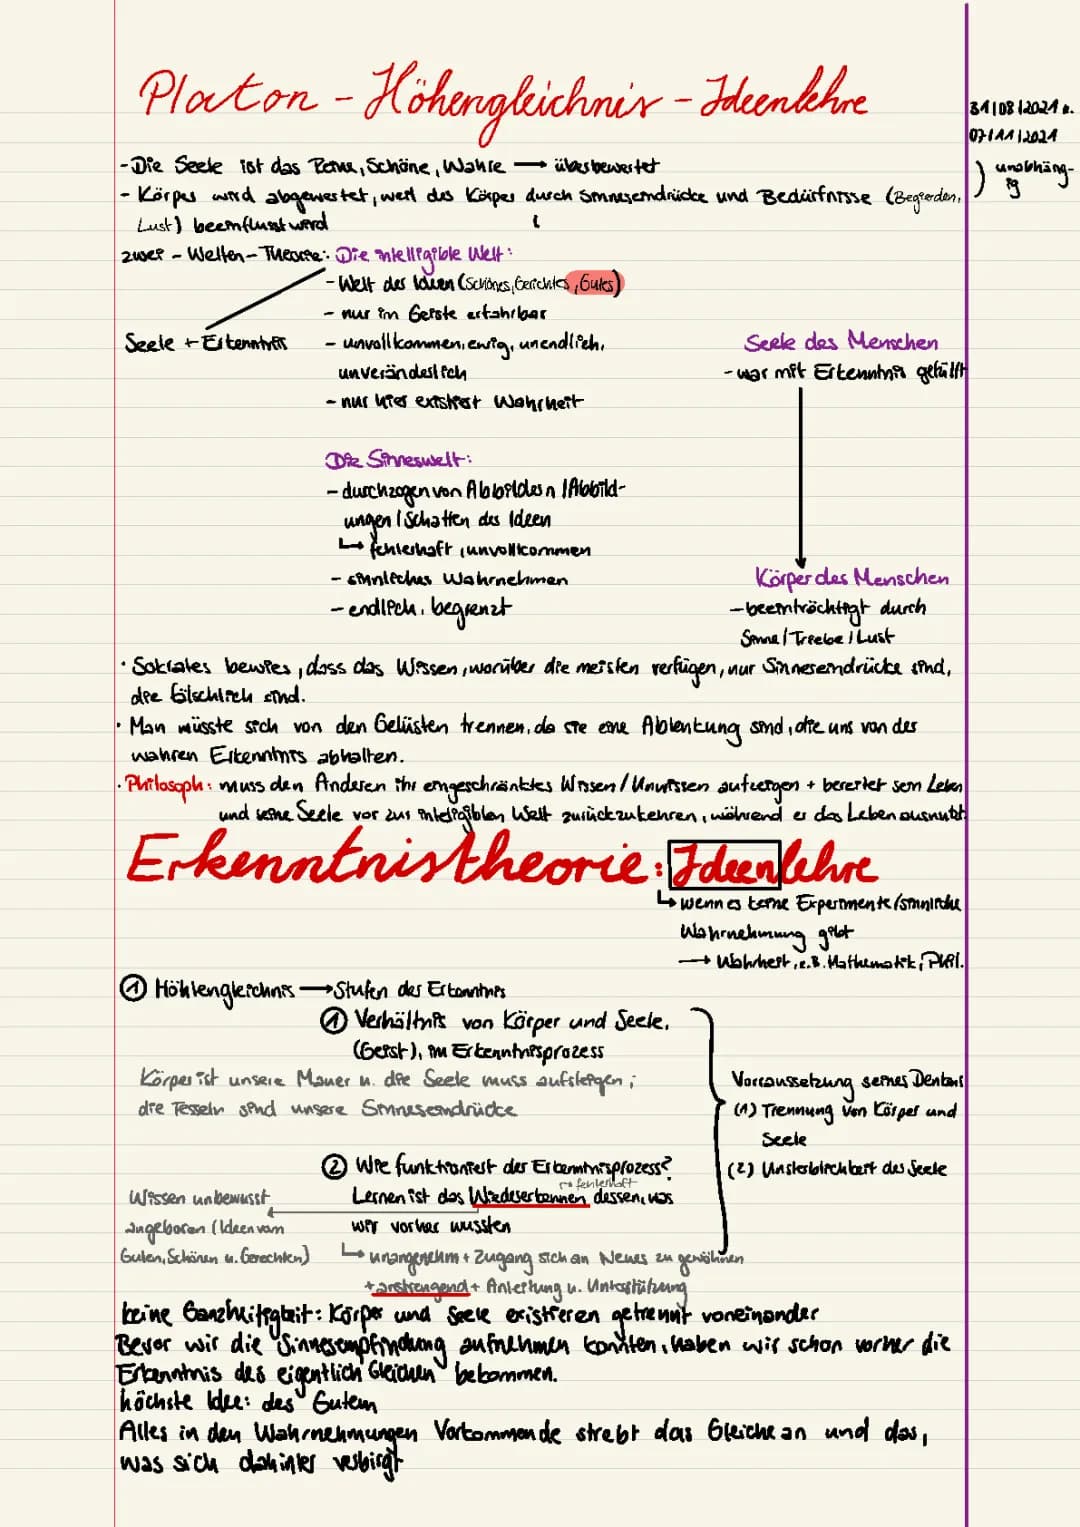 Platon - Höhengleichnis - Ideenlehre
31|08|2021 u.
07|11|2021
- Die Seele ist das Reine, Schöne, Wahre → überbewertet
) unabhäng-
ig
- Körper wird abgewertet, weil der Körper durch Sinneseindrücke und Bedürfnisse (Begierden,
Lust) beeinflusst wird
zwei - Welten - Theorie: Die intelligible Welt:
- Welt der Ideen (Schönes, Gerechtes, Gutes)
- nur im Geiste erfahrbar
Seele + Erkenntnis
- unvollkommen, ewig, unendlich,
unveränderlich
- nur hier existiert Wahrheit
Seele des Menschen
- war mit Erkenntnis gefüllt
Die Sinneswelt:
- durchzogen von Abbildern / Abbild-
ungen / Schatten der Ideen
↳ fehlerhaft, unvollkommen
- sinnliches Wahrnehmen
- endlich, begrenzt
Körper des Menschen
- beeinträchtigt durch
Sinne / Triebe / Lust
· Sokrates bewies, dass das Wissen, worüber die meisten verfügen, nur Sinneseindrücke sind,
die fälschlich sind.
· Man müsste sich von den Gelüsten trennen, da sie eine Ablenkung sind, die uns von der
wahren Erkenntnis abhalten.
· Philosoph: muss den Anderen ihr eingeschränktes Wissen / Unwissen aufzeigen + bereitet sein Leben
und seine Seele vor zur intelligiblen Welt zurückzukehren, während er das Leben ausnutzt
Erkenntnistheorie: Ideenlehre
↳ wenn es keine Experimente / sinnliche
Wahrnehmung gibt
→ Wahrheit, z.B. Mathematik, Phil.
① Höhlengleichnis → Stufen der Erkenntnis
① Verhältnis von Körper und Seele,
(Geist), im Erkenntnisprozess
Körper ist unsere Mauer u. die Seele muss aufsteigen;
die Fesseln sind unsere Sinneseindrücke
Vorraussetzung seines Denkens
(1) Trennung von Körper und
Seele
(2) Unsterblichkeit der Seele
② Wie funktioniert der Erkenntnisprozess?
↱ fehlerhaft
Lernen ist das Wiedererkennen dessen, was
wir vorher wussten
Wissen unbewusst
angeboren (Ideen vom
Guten, Schönen u. Gerechten)
↳ unangenehm + Zugang sich an Neues zu gewöhnen
+ anstrengend + Anleitung u. Unterstützung
keine Ganzheitigkeit: Körper und Seele existieren getrennt voneinander
Bevor wir die Sinnesempfindung aufnehmen konnten, haben wir schon vorher die
Erkenntnis des eigentlich Gleichen bekommen.
höchste Idee: des Gutem
Alles in den Wahrnehmungen Vorkommende strebt das Gleiche an und das,
was sich dahinter verbirgt